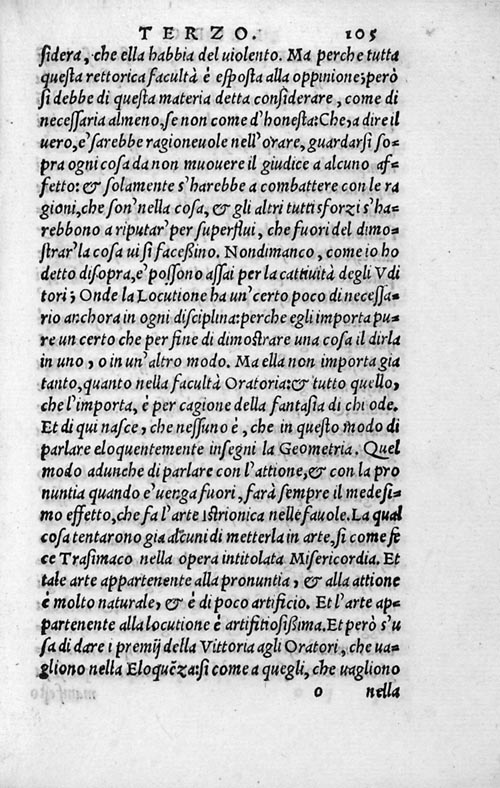 TERZO. 105
sidera, che ella habbia del uiolento. Ma perche tutta
questa rettorica facultà è esposta alla oppinione; però
si debbe di questa materia detta considerare, come di
necessaria almeno, se non come d'honesta: Che, a dire il
uero, e' sarebbe ragioneuole nell'orare, guardarsi so-
pra ogni cosa da non muouere il giudice a alcuno af-
fetto: & solamente s'harebbe a combattere con le ra
gioni, che son' nella cosa, & gli altri tutti sforzi s'ha-
rebbono a riputar' per superflui, che fuori del dimo-
strar' la cosa ui si facessino. Nondimanco, come io ho
detto disopra, e' possono assai per la cattiuità degli Vdi
tori; Onde la Locutione ha un' certo poco di necessa-
rio anchora in ogni disciplina: perche egli importa pu-
re un certo che per fine di dimostrare una cosa il dirla
in uno, o in un' altro modo. Ma ella non importa gia
tanto, quanto nella facultà Oratoria: & tutto quello,
che l'importa, è per cagione della fantasia di chi ode.
Et di qui nasce, che nessuno è, che in questo modo di
parlare eloquentemente insegni la Geometria. Quel
modo adunche di parlare con l'attione, & con la pro
nuntia quando e' uenga fuori, farà sempre il medesi-
mo effetto, che fa l'arte Istrionica nelle fauole. La qual
cosa tentarono gia alcuni di metterla in arte, si come fe
ce Trasimaco nella opera intitolata Misericordia. Et
tale arte appartenente alla pronuntia, & alla attione
è molto naturale, & è di poco artificio. Et l'arte ap-
partenente alla locutione è artifitiosissima. Et però s'u
sa di dare i premij della Vittoria agli Oratori, che ua-
gliono nella Eloquẽza: si come a quegli, che uagliono
o nella